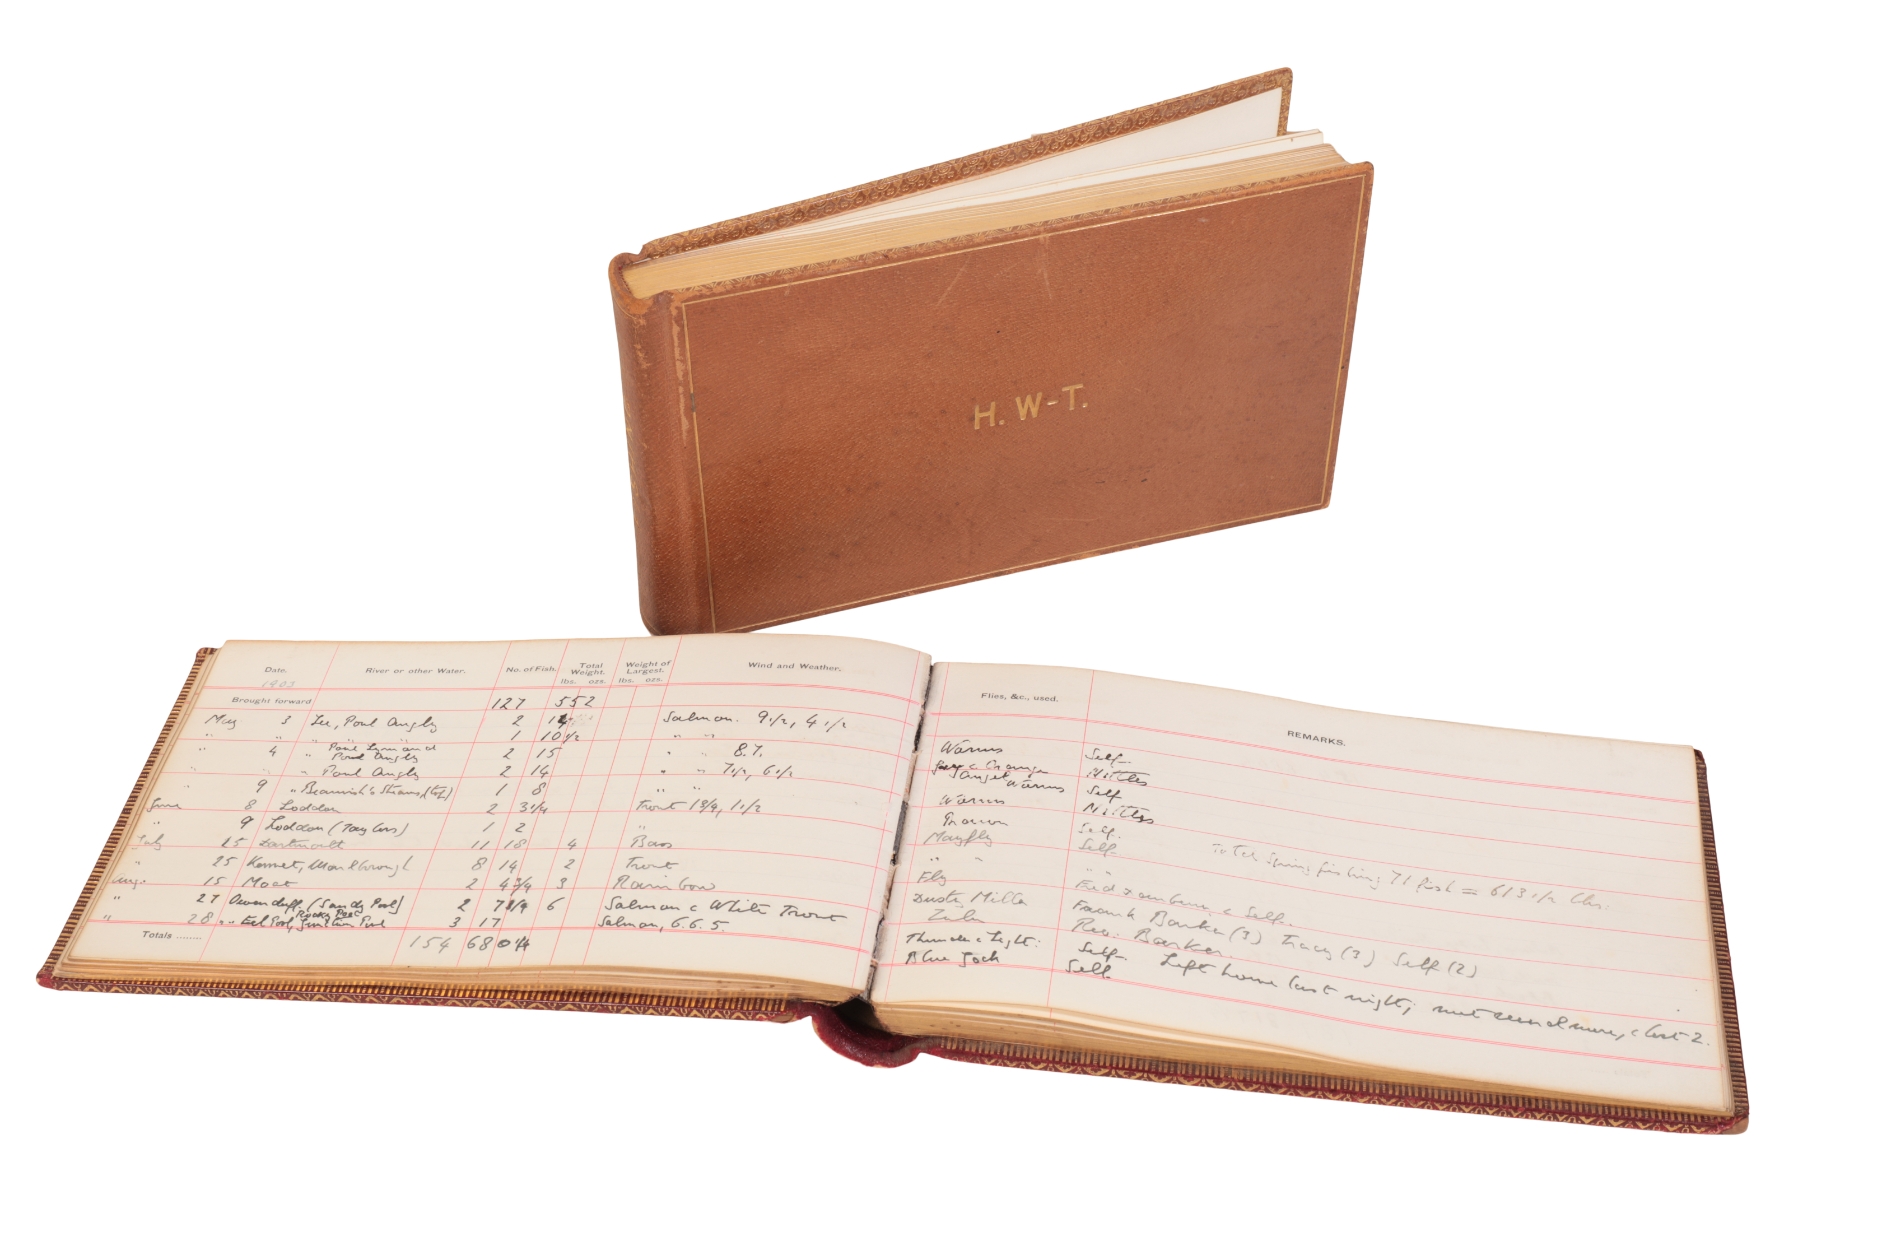 H. W-T.
Date. River or other Water. No. of Fish. Total Weight. lbs. ozs. Weight of Largest. lbs. ozs. Wind and Weather.
1903
Brought forward 127 552
May 3 Lee, Poul Augly 2 14 Salmon. 9 1/2, 4 1/2
" " " " 1 10 1/2 " "
" 4 " Poul Augly 2 15 " " 8.7.
" " " Poul Augly 2 14 " " 7 1/2, 6 1/2
" 9 " Beamish's Stream 1 8 " "
June 8 Loddon 2 3 1/4 Trout 1 3/4, 1 1/2
" 9 Loddon (Taylors) 1 2 "
July 25 Dartmouth 11 18 4 Bass
" 25 Kennet, Marlborough 8 14 2 Trout
Aug. 15 Moat 2 4 3/4 3 Rainbow
" 27 Owenduff. (Sandy Pool) 2 7 6 Salmon & White Trout
" 28 " " Eel Pool, Rocky Pool Junction Pool 3 17 Salmon, 6.6.5.
Totals ........ 154 680
Flies, &c., used. REMARKS.
Worms Self
& Orange
Self
Worms
Prawn Self.
Mayfly Self.
" " " " Total Spring fishing 71 fish = 613 1/2 lbs.
Fly & Self.
Dusty Miller Frank Barker (3) Tracy (3) Self (2)
Zulu Rev. Barker.
Thunder & Light: Self
Blue Jock Self Left home last night; & lost 2.